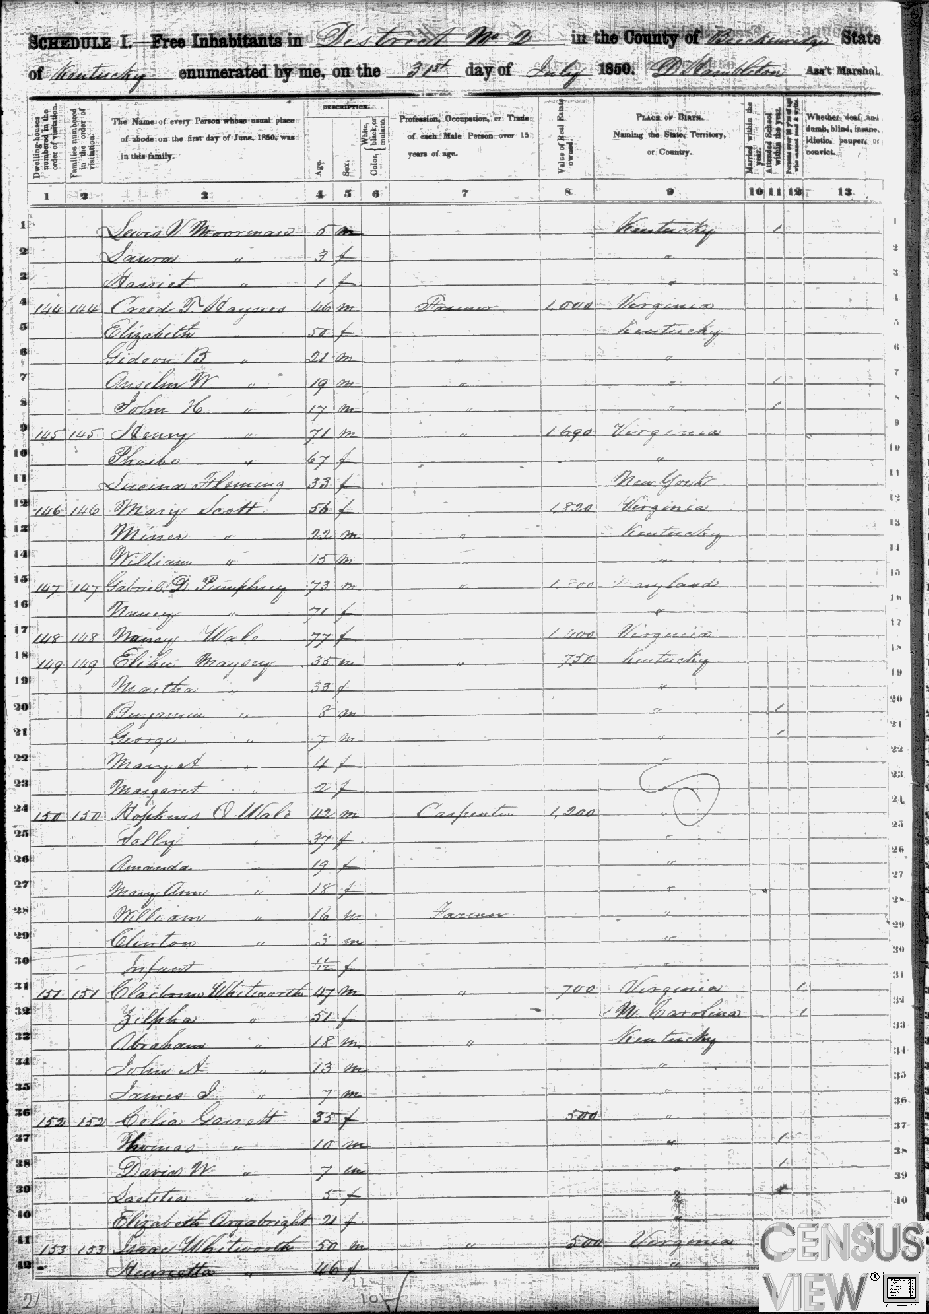 SCHEDULE I. Free Inhabitants in District No 2 in the County of Breckenridge State
of Kentucky enumerated by me, on the 31st day of July 1850. Ass't Marshal.
Dwelling-houses numbered in the order of visitation.
Families numbered in the order of visitation.
The Name of every Person whose usual place of abode on the first day of June, 1850, was in this family.
DESCRIPTION.
Age.
Sex.
Color, { White, black, or mulatto.
Profession, Occupation, or Trade of each Male Person over 15 years of age.
Value of Real Estate owned.
PLACE OF BIRTH. Naming the State, Territory, or Country.
Married within the year.
Attended School within the year.
Whether deaf and dumb, blind, insane, idiotic, pauper, or convict.
1 2 3 4 5 6 7 8 9 10 11 12 13
1 Lewis V Moorman 5 m Kentucky 1
2 Laura " 3 f "
3 Harriet " 1 f "
4 144 144 Creed T Haynes 46 m Farmer 1,000 Virginia
5 Elizabeth " 50 f Kentucky
6 Gideon B " 21 m " "
7 Anselm W " 19 m " " 1
8 John H " 17 m " 1
9 145 145 Henry " 71 m " 1690 Virginia
10 Phoebe " 67 f "
11 Lucina Fleming 33 f New York
12 146 146 Mary Scott 56 f 1820 Virginia
13 " 22 m " Kentucky
14 William " 15 m "
15 147 147 Gabriel D Pumphrey 73 m " Maryland
16 Nancy " 71 f "
17 148 148 Nancy Wale 77 f Virginia
18 149 149 Elihu Maysey 35 m " 750 Kentucky
19 Martha " 33 f "
20 Benjamin " 8 m " 1
21 George " 7 m " 1
22 Mary A " 4 f "
23 Margaret " 2 f
24 150 150 Hopkins O Wale 42 m Carpenter 1,200 "
25 Sally " 37 f "
26 Amanda " 19 f "
27 Mary Ann " 18 f "
28 William " 16 m Farmer "
29 Clinton " 3 m "
30 Infant f
31 151 151 Claiborn Whitworth 47 m " 700 Virginia 1
32 Zilpha " 51 f N. Carolina 1
33 Abraham " 18 m " Kentucky
34 John A " 13 m "
35 James I " 7 m "
36 152 152 Celia Garrett 35 f 500 "
37 Thomas " 10 m " 1
38 David W " 7 m " 1
39 Laetitia " 5 f "
40 Elizabeth Argabright 21 f "
41 153 153 Isaac Whitworth 50 m " 500 Virginia
42 Henrietta " 46 f "
CENSUS
VIEW®